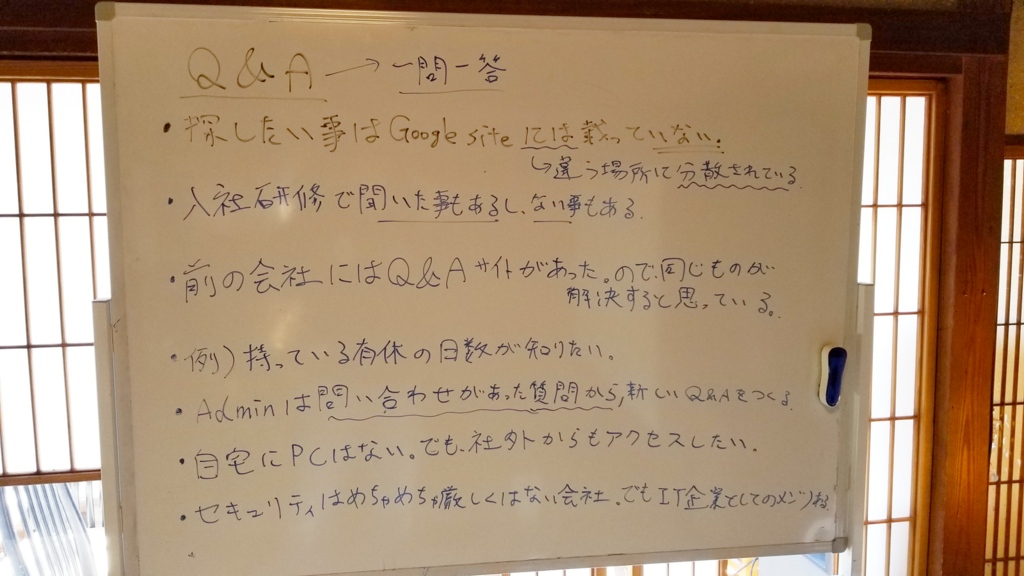 Q&A → 一問一答
・探したい事はGoogle siteには載っていない.
↳違う場所に分散されている.
・入社研修で聞いた事もあるし、ない事もある.
・前の会社にはQ&Aサイトがあった。ので、同じものが
解決すると思っている。
・例)持っている有休の日数が知りたい。
・Adminは問い合わせがあった質問から,新しいQ&Aをつくる.
・自宅にPCはない。でも、社外からもアクセスしたい.
・セキュリティはめちゃめちゃ厳しくはない会社.でもIT企業としての